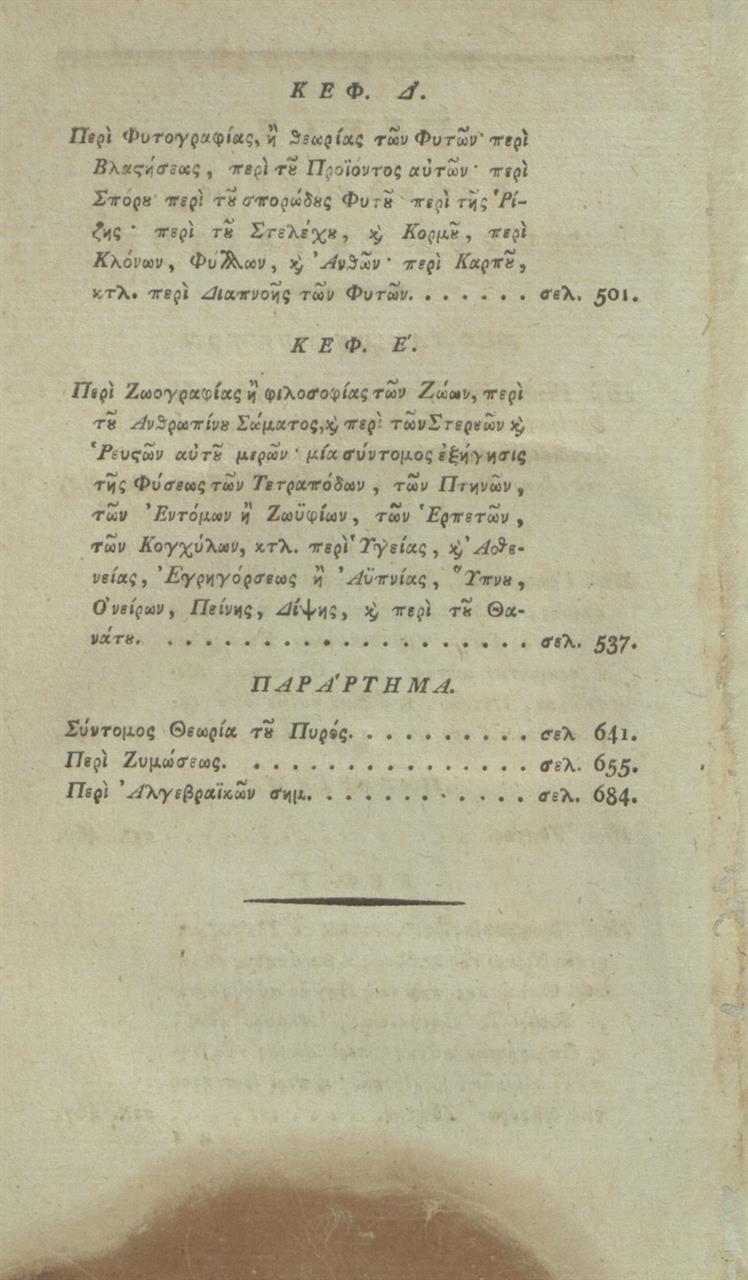 ΚΕΦ. Δ'.
Περὶ Φυτογραφίας, ἢ ϑεωρίας τῶν Φυτῶν· περὶ
Βλαϛήσεως, περὶ τȣ̃ Προϊόντος αὐτῶν· περὶ
Σπόρȣ· περὶ τȣ̃ σπορώδȣς Φυτȣ̃ περὶ τῆς Ῥί-
ζης· περὶ τȣ̃ Στελέχȣ, ϗ̀ Κορμȣ̃, περὶ
Κλόνων, Φύλλων, ϗ̀ Ἀνϑῶν· περὶ Καρπȣ̃,
κτλ. περὶ Διαπνοῆς τῶν Φυτῶν. . . . . . . σελ. 501.
ΚΕΦ. Ε'.
Περὶ Ζωογραφίας ἢ φιλοσοφίας τῶν Ζώων, περὶ
τȣ̃ Ανϑρωπίνȣ Σώματος, ϗ̀ περὶ τῶν Στερεῶν ϗ̀
Ῥευϛῶν αὐτȣ̃ μερῶν· μία σύντομος ἐξήγησις
τῆς Φύσεως τῶν Τετραπόδων, τῶν Πτηνῶν,
τῶν Ἐντόμων ἢ Ζωϋφίων, τῶν Ἑρπετῶν,
τῶν Κογχύλων, κτλ. περὶ Ὑγείας, ϗ̀ Ἀσϑε-
νείας, Ἐγρηγόρσεως ἢ Ἀϋπνίας, Ὕπνȣ,
Ὀνείρων, Πείνης, Δίψης, ϗ̀ περὶ τȣ̃ Θα-
νάτȣ. . . . . . . . . . . . . . . . . . . . . σελ. 537.
ΠΑΡΑ'ΡΤΗΜΑ.
Σύντομος Θεωρία τȣ̃ Πυρός. . . . . . . . . . σελ 641.
Περὶ Ζυμώσεως. . . . . . . . . . . . . . . . σελ. 655.
Περὶ Ἀλγεβραϊκῶν σημ. . . . . . . . . . . . σελ. 684.